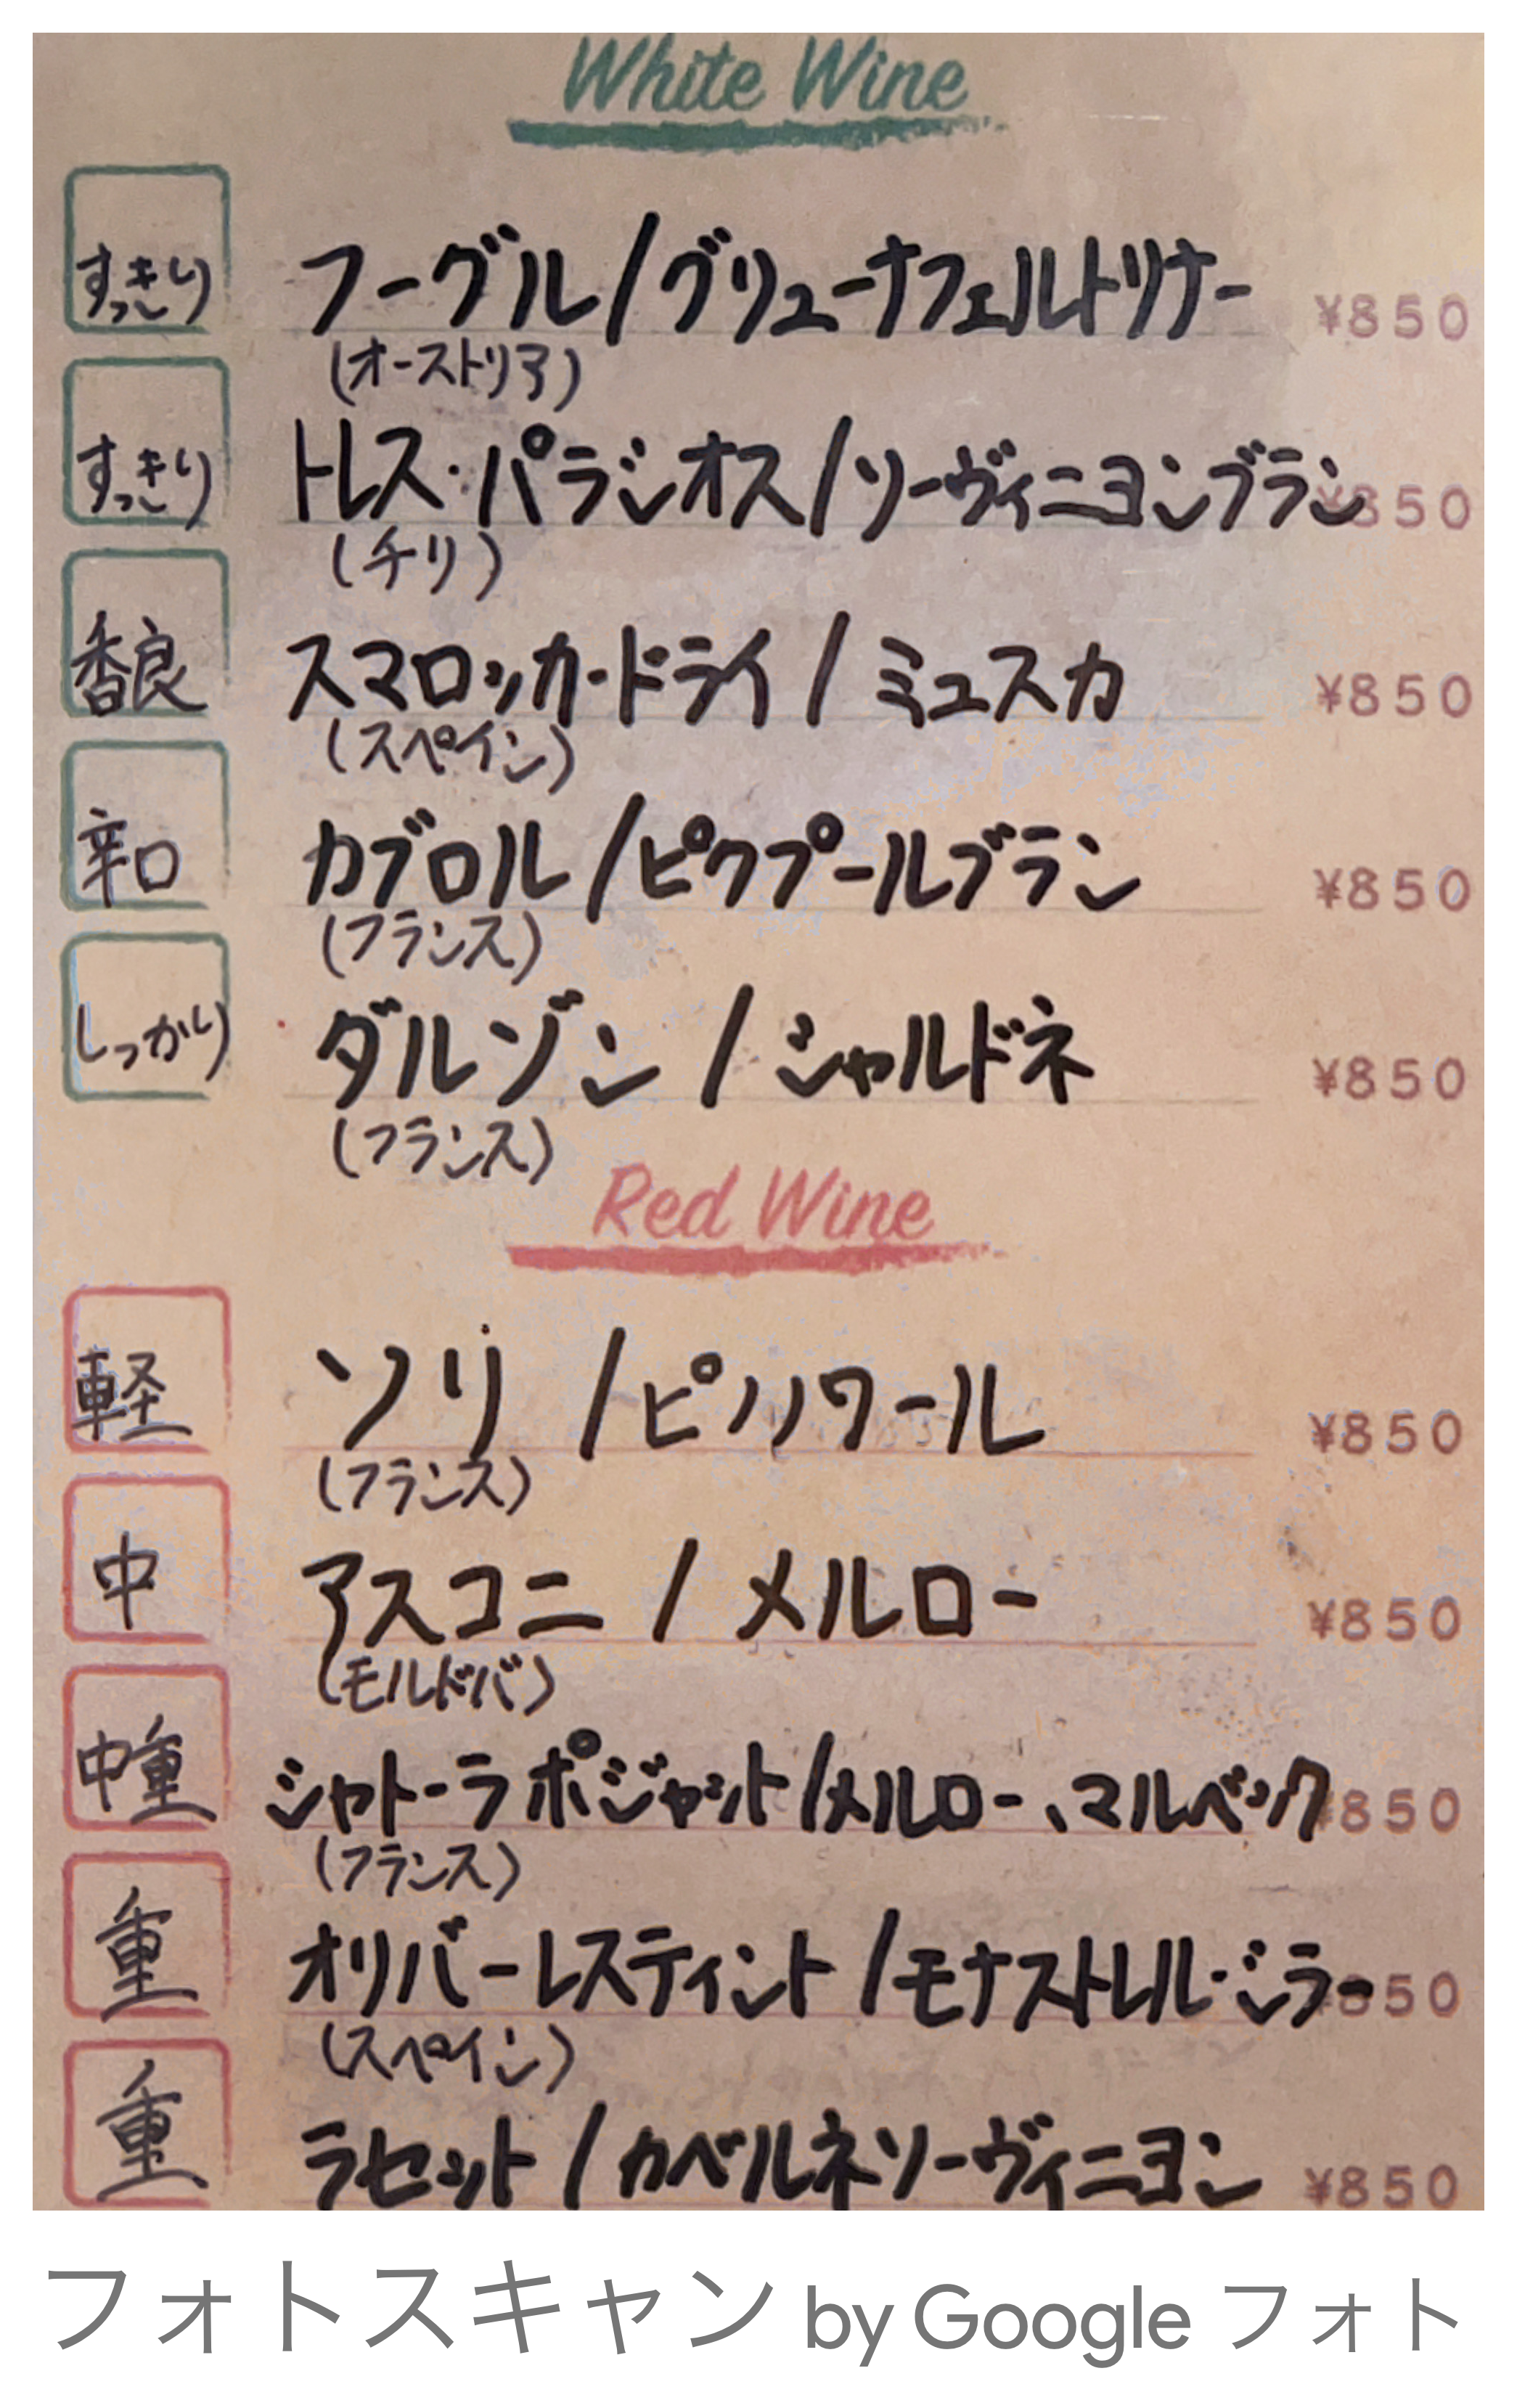 White Wine
すっきり フーグル/グリューナフェルトリナー ¥850
(オーストリア)
すっきり トレス・パラシオス/ソーヴィニヨンブラン ¥850
(チリ)
香良 スマロッカ・ドライ/ミュスカ ¥850
(スペイン)
辛口 カブロル/ピクプールブラン ¥850
(フランス)
しっかり ダルゾン/シャルドネ ¥850
(フランス)
Red Wine
軽 ソリ/ピノノワール ¥850
(フランス)
中 アスコニ/メルロー ¥850
(モルドバ)
中重 シャトーラポジャット/メルロー、マルベック ¥850
(フランス)
重 オリバーレスティント/モナストレル・シラー 850
(スペイン)
重 ラセット/カベルネソーヴィニヨン ¥850
フォトスキャン by Google フォト